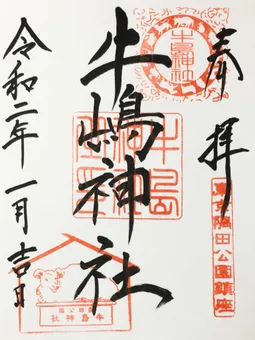 奉拝
東京隅田公園鎮座
牛嶋神社
牛島神社
令和二年一月吉日
牛島神社